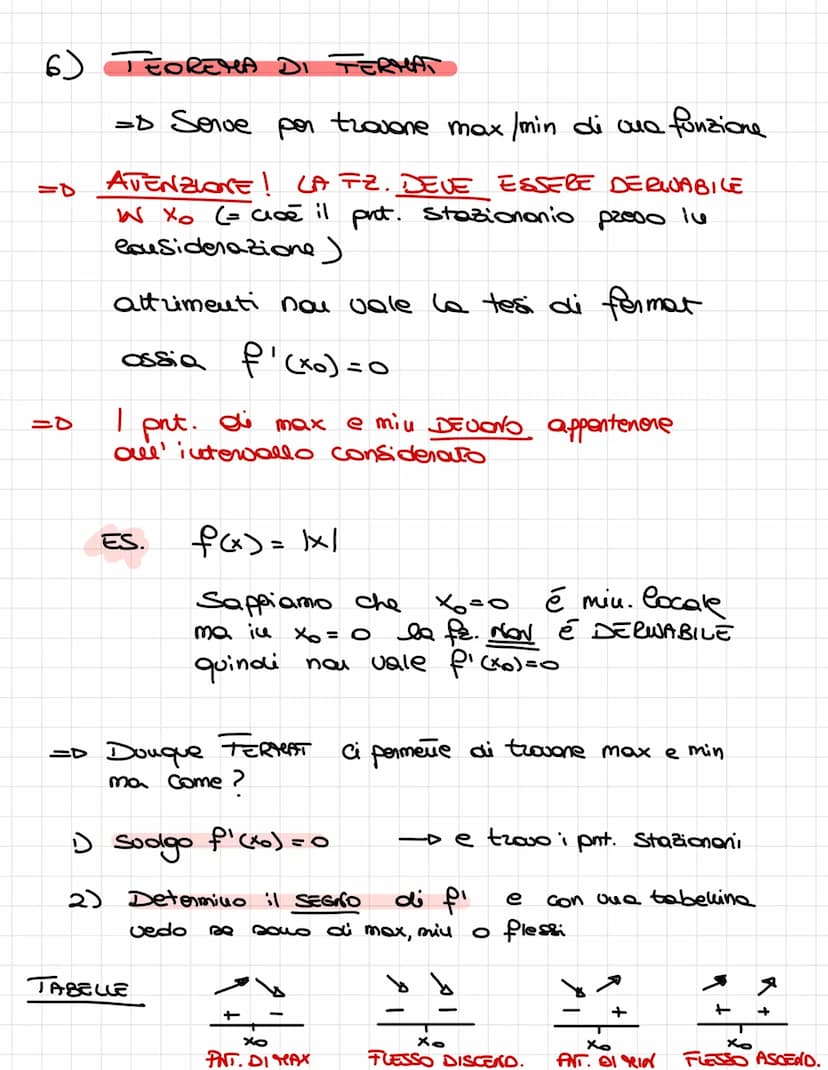 6) TEOREMA DI FERMAT
=D Serve per trovare max/min di una funzione
=D ATTENZIONE! LA FZ. DEVE ESSERE DERIVABILE
IN x₀ (= cioè il pnt. stazionario preso in
considerazione)
altrimenti non vale la tesi di fermat
ossia f'(x₀) = 0
=D I pnt. di max e min DEVONO appartenere
all'intervallo considerato
ES. f(x) = |x|
Sappiamo che x₀=0 é min. locale
ma in x₀ = 0 la fz. NON É DERIVABILE
quindi non vale f'(x₀)=0
=D Dunque FERMAT ci permette di trovare max e min
ma come?
1) Svolgo f'(x₀) = 0 → e trovo i pnt. stazionari
2) Determino il SEGNO di f' e con una tabellina
vedo se sono di max, min o flessi
TABELLE
+ - - - - + + +
x₀ x₀ x₀ x₀
PNT. DI MAX FLESSO DISCEND. PNT. DI MIN FLESSO ASCEND.